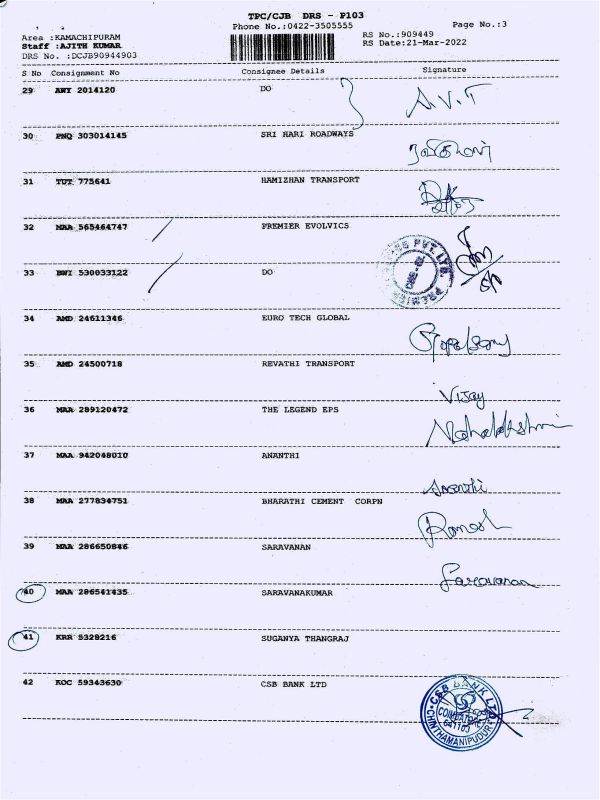 TPC/CJB DRS - P103
Phone No.:0422-3505555
Page No.:3
Area :KAMACHIPURAM
RS No.:909449
Staff :AJITH KUMAR
RS Date:21-Mar-2022
DRS No. :DCJB90944903
S No Consignment No Consignee Details Signature
29 AWY 2014120 DO A.V.T
30 PNQ 303014145 SRI HARI ROADWAYS
31 TUT 775641 HAMIZHAN TRANSPORT
32 MAA 565464747 PREMIER EVOLVICS
33 BWI 530033122 DO
34 AMD 24611346 EURO TECH GLOBAL
35 AMD 24500718 REVATHI TRANSPORT
Vijay
36 MAA 289120472 THE LEGEND EPS
Mahalakshmi
37 MAA 942048010 ANANTHI
Ananthi
38 MAA 277834751 BHARATHI CEMENT CORPN
Ramesh
39 MAA 286650846 SARAVANAN
Saravanan
40 MAA 286541435 SARAVANAKUMAR
41 KRR 5328216 SUGANYA THANGRAJ
42 KOC 59343630 CSB BANK LTD
CSB BANK LTD
COIMBATORE
641103
CHINTHAMANIPUDUR